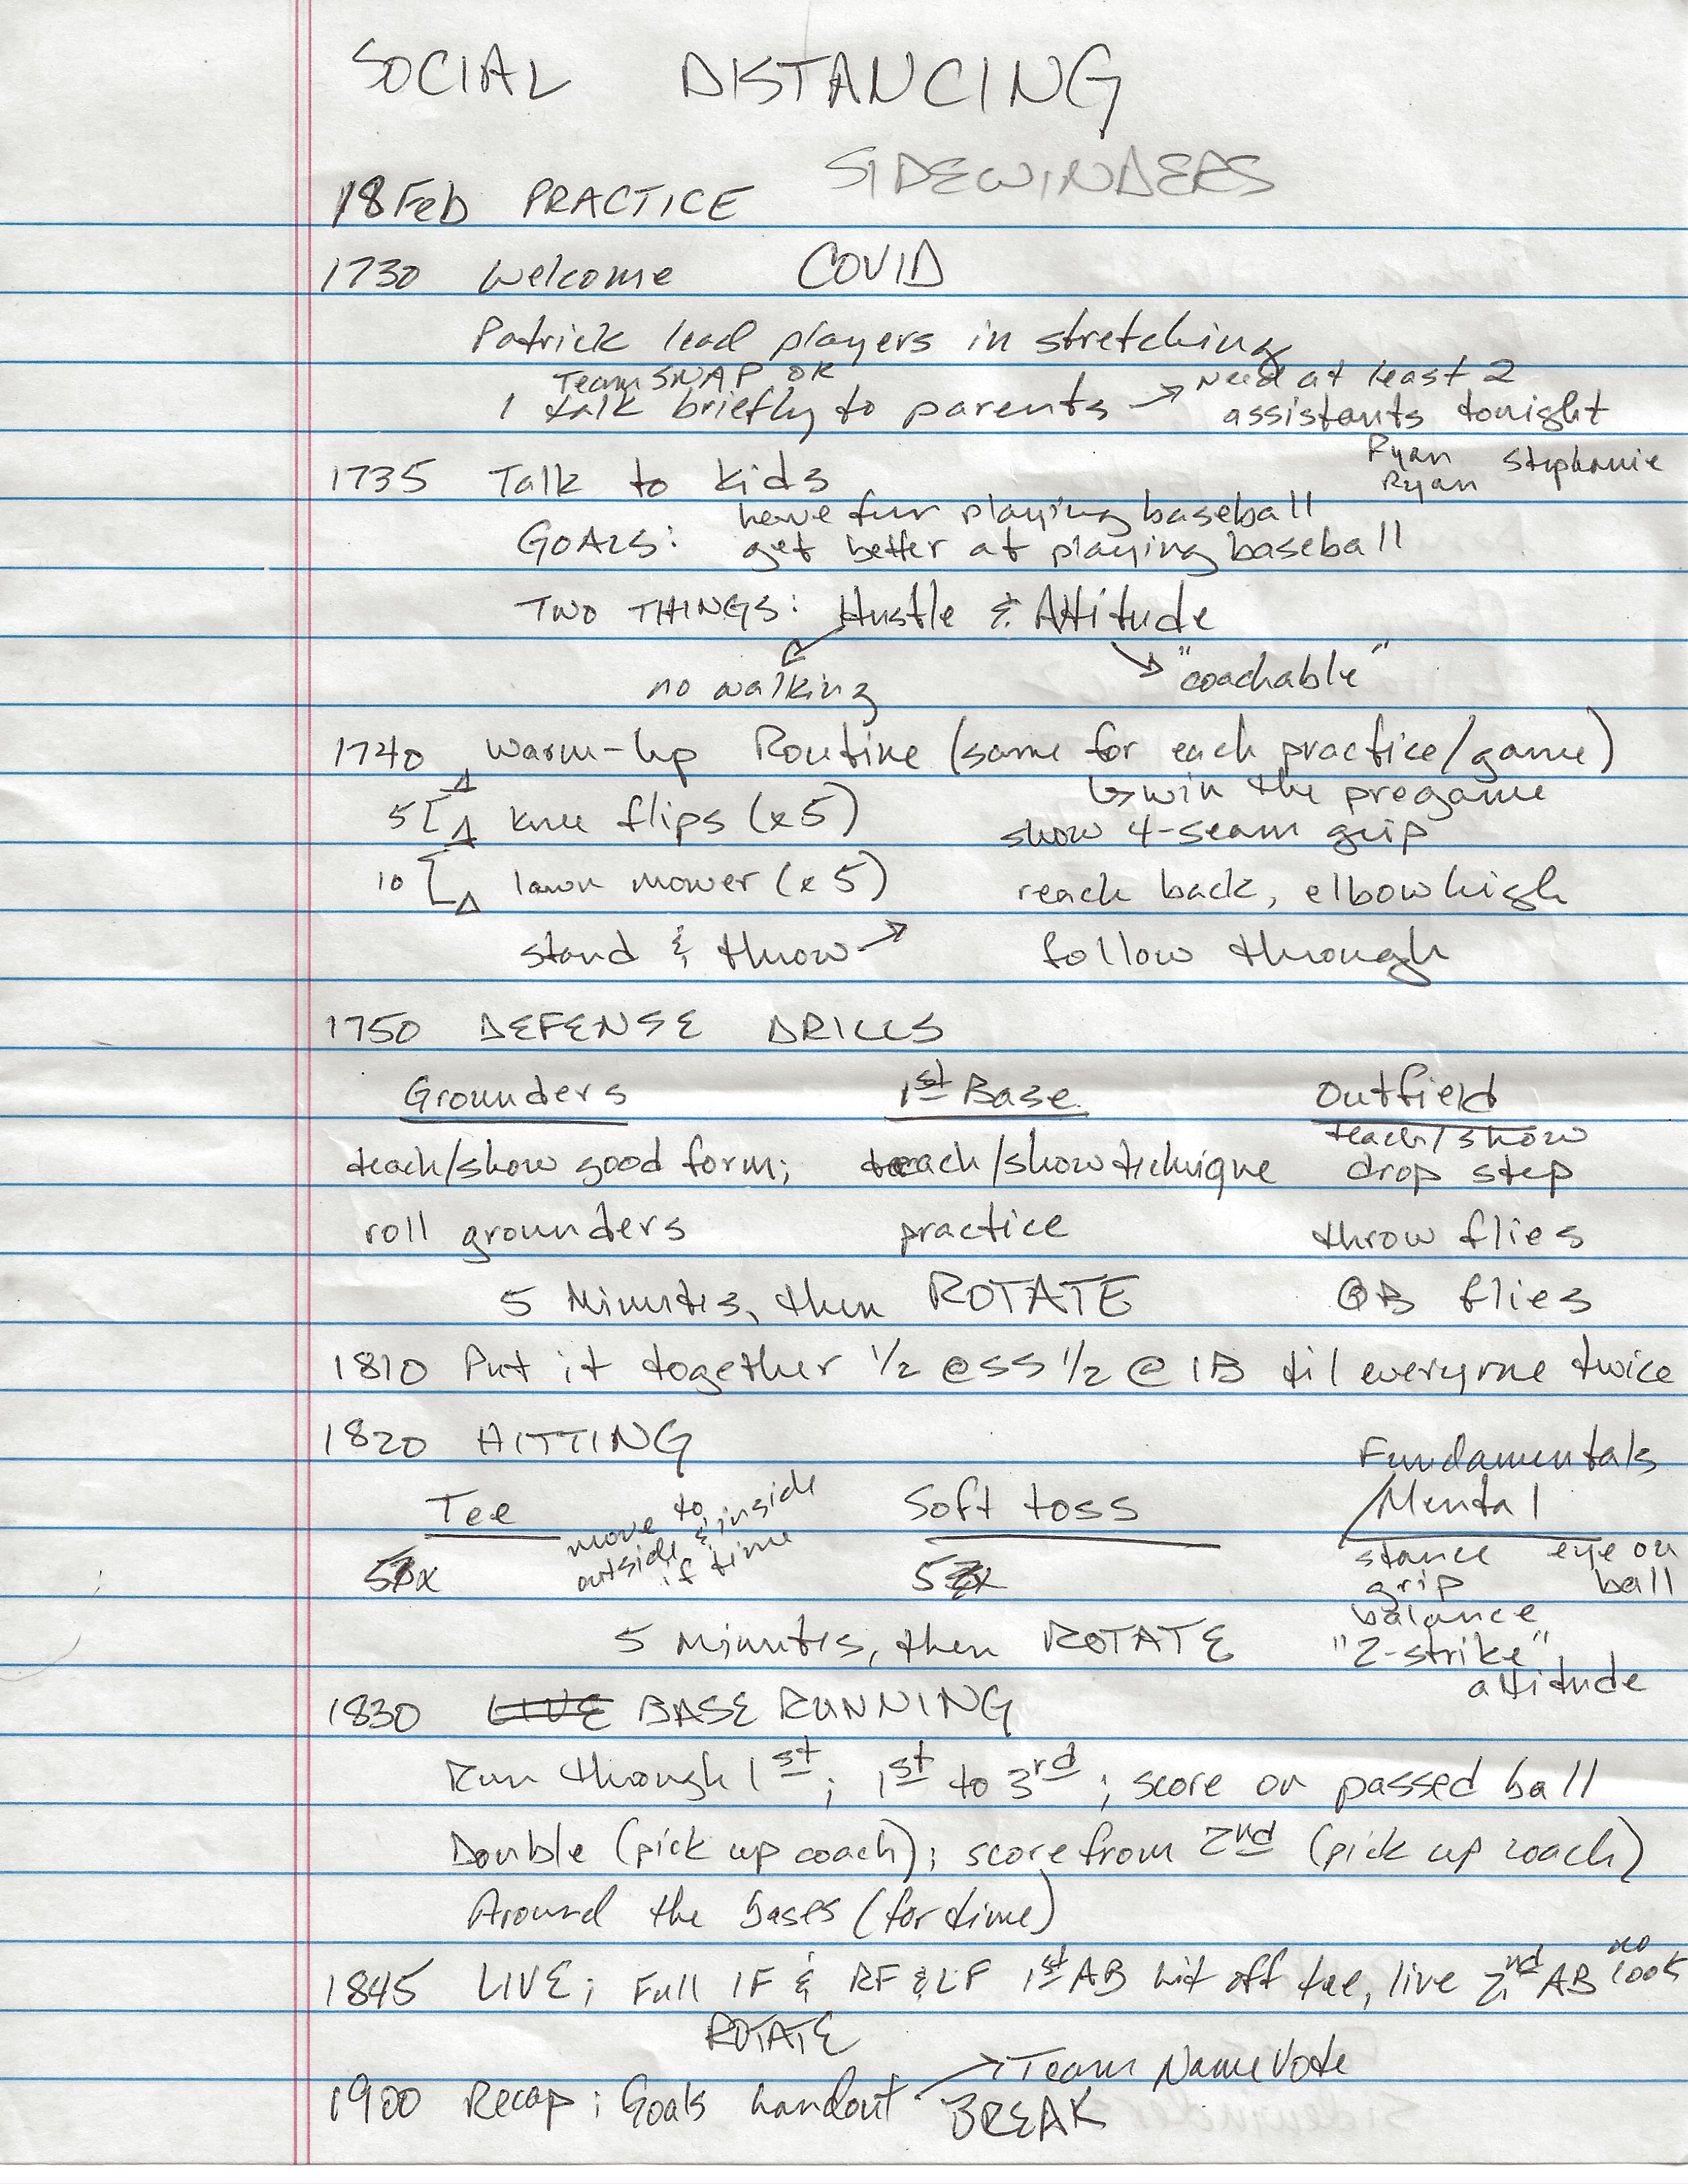 SOCIAL DISTANCING
SIDEWINDERS
18 Feb PRACTICE
1730 Welcome COVID
Patrick lead players in stretching
TeamSNAP OR
I talk briefly to parents → Need at least 2
assistants tonight
Ryan Stephanie
Ryan
1735 Talk to kids
have fun playing baseball
GOALS: get better at playing baseball
TWO THINGS: Hustle & Attitude
no walking "coachable"
1740 Warm-up Routine (same for each practice/game)
↳ win the pregame
5 knee flips (x5) show 4-seam grip
10 lawn mower (x5) reach back, elbow high
stand & throw → follow through
1750 DEFENSE DRILLS
Grounders 1st Base Outfield
teach/show good form; teach/show technique teach/show
drop step
roll grounders practice throw flies
5 Minutes, then ROTATE QB flies
1810 Put it together 1/2 @ SS 1/2 @ 1B til everyone twice
1820 HITTING
Fundamentals
Tee Soft toss /Mental
move to
outside & inside
if time
5x 5x
stance eye on
grip ball
balance
5 Minutes, then ROTATE "2-strike"
attitude
1830 LIVE BASE RUNNING
Run through 1st; 1st to 3rd; score on passed ball
Double (pick up coach); score from 2nd (pick up coach)
Around the bases (for time)
1845 LIVE; Full IF & RF & LF 1st AB hit off tee, live 2nd AB no looks
ROTATE
1900 Recap; Goals handout → Team Name Vote
BREAK